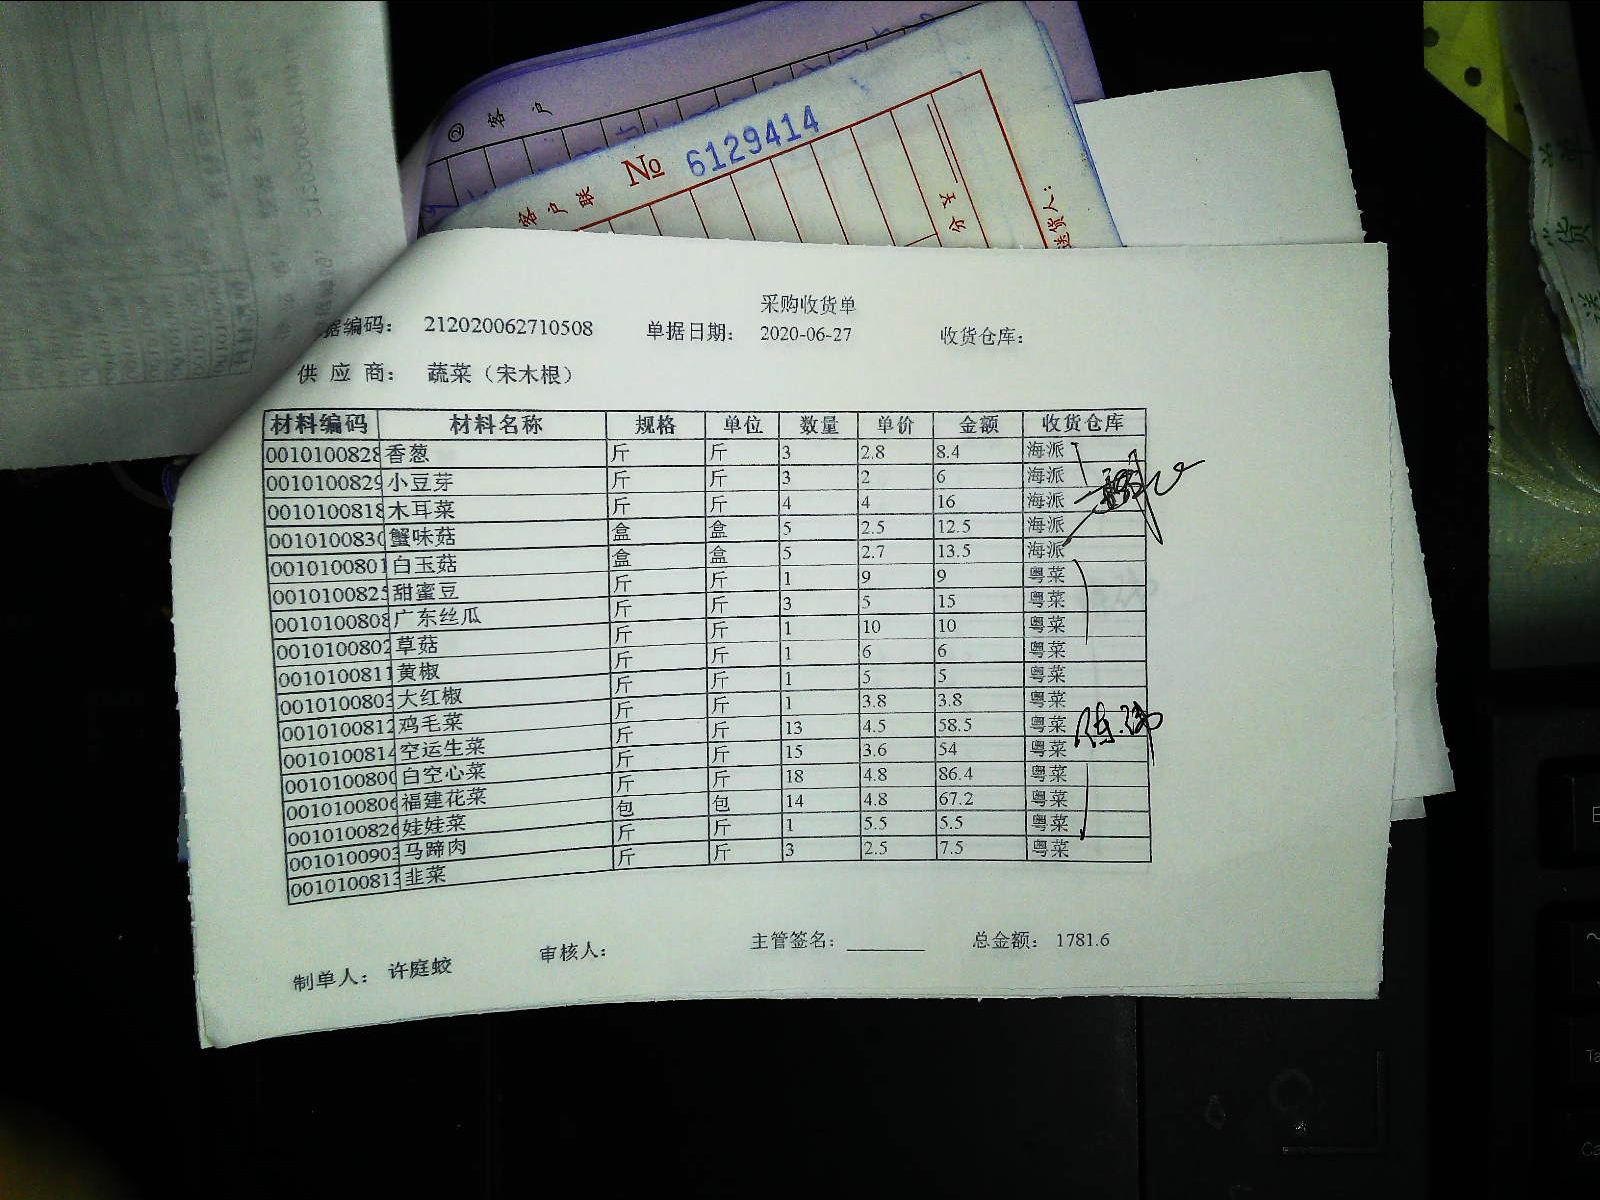 ② 客 户
客 户 联 № 6129414
分 生
送货人:
采购收货单
据编码: 212020062710508 单据日期: 2020-06-27 收货仓库:
供 应 商: 蔬菜（宋木根）
材料编码 材料名称 规格 单位 数量 单价 金额 收货仓库
0010100828 香葱 斤 斤 3 2.8 8.4 海派
0010100829 小豆芽 斤 斤 3 2 6 海派
0010100818 木耳菜 斤 斤 4 4 16 海派
0010100830 蟹味菇 盒 盒 5 2.5 12.5 海派
0010100801 白玉菇 盒 盒 5 2.7 13.5 海派
0010100825 甜蜜豆 斤 斤 1 9 9 粤菜
0010100808 广东丝瓜 斤 斤 3 5 15 粤菜
0010100802 草菇 斤 斤 1 10 10 粤菜
0010100811 黄椒 斤 斤 1 6 6 粤菜
0010100803 大红椒 斤 斤 1 5 5 粤菜
0010100812 鸡毛菜 斤 斤 1 3.8 3.8 粤菜
0010100814 空运生菜 斤 斤 13 4.5 58.5 粤菜
0010100800 白空心菜 斤 斤 15 3.6 54 粤菜
0010100806 福建花菜 斤 斤 18 4.8 86.4 粤菜
0010100826 娃娃菜 包 包 14 4.8 67.2 粤菜
0010100903 马蹄肉 斤 斤 1 5.5 5.5 粤菜
0010100813 韭菜 斤 斤 3 2.5 7.5 粤菜
制单人: 许庭蛟 审核人: 主管签名: 总金额: 1781.6